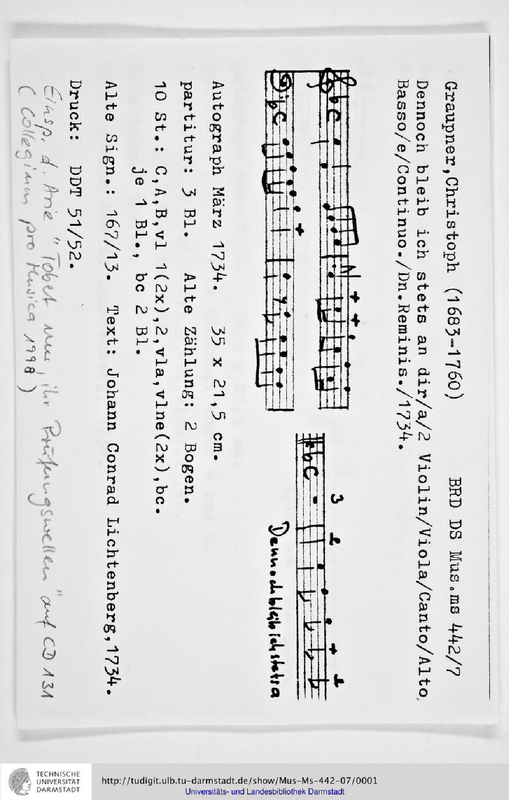 Graupner,Christoph (1683-1760) BRD DS Mus.ms 442/7
Dennoch bleib ich stets an dir/a/2 Violin/Viola/Canto/Alto,
Basso/e/Continuo./Dn.Reminis./1734.
Dennoch bleib ich stets a
Autograph März 1734. 35 x 21,5 cm.
partitur: 3 Bl. Alte Zählung: 2 Bogen.
10 St.: C,A,B,vl 1(2x),2,vla,vlne(2x),bc.
je 1 Bl., bc 2 Bl.
Alte Sign.: 167/13. Text: Johann Conrad Lichtenberg,1734.
Druck: DDT 51/52.
Einsp. d. Arie "Tobet nur, ihr Prüfungswellen" auf CD 131
(Collegium pro Musica 1998)
TECHNISCHE
UNIVERSITÄT
DARMSTADT
http://tudigit.ulb.tu-darmstadt.de/show/Mus-Ms-442-07/0001
Universitäts- und Landesbibliothek Darmstadt